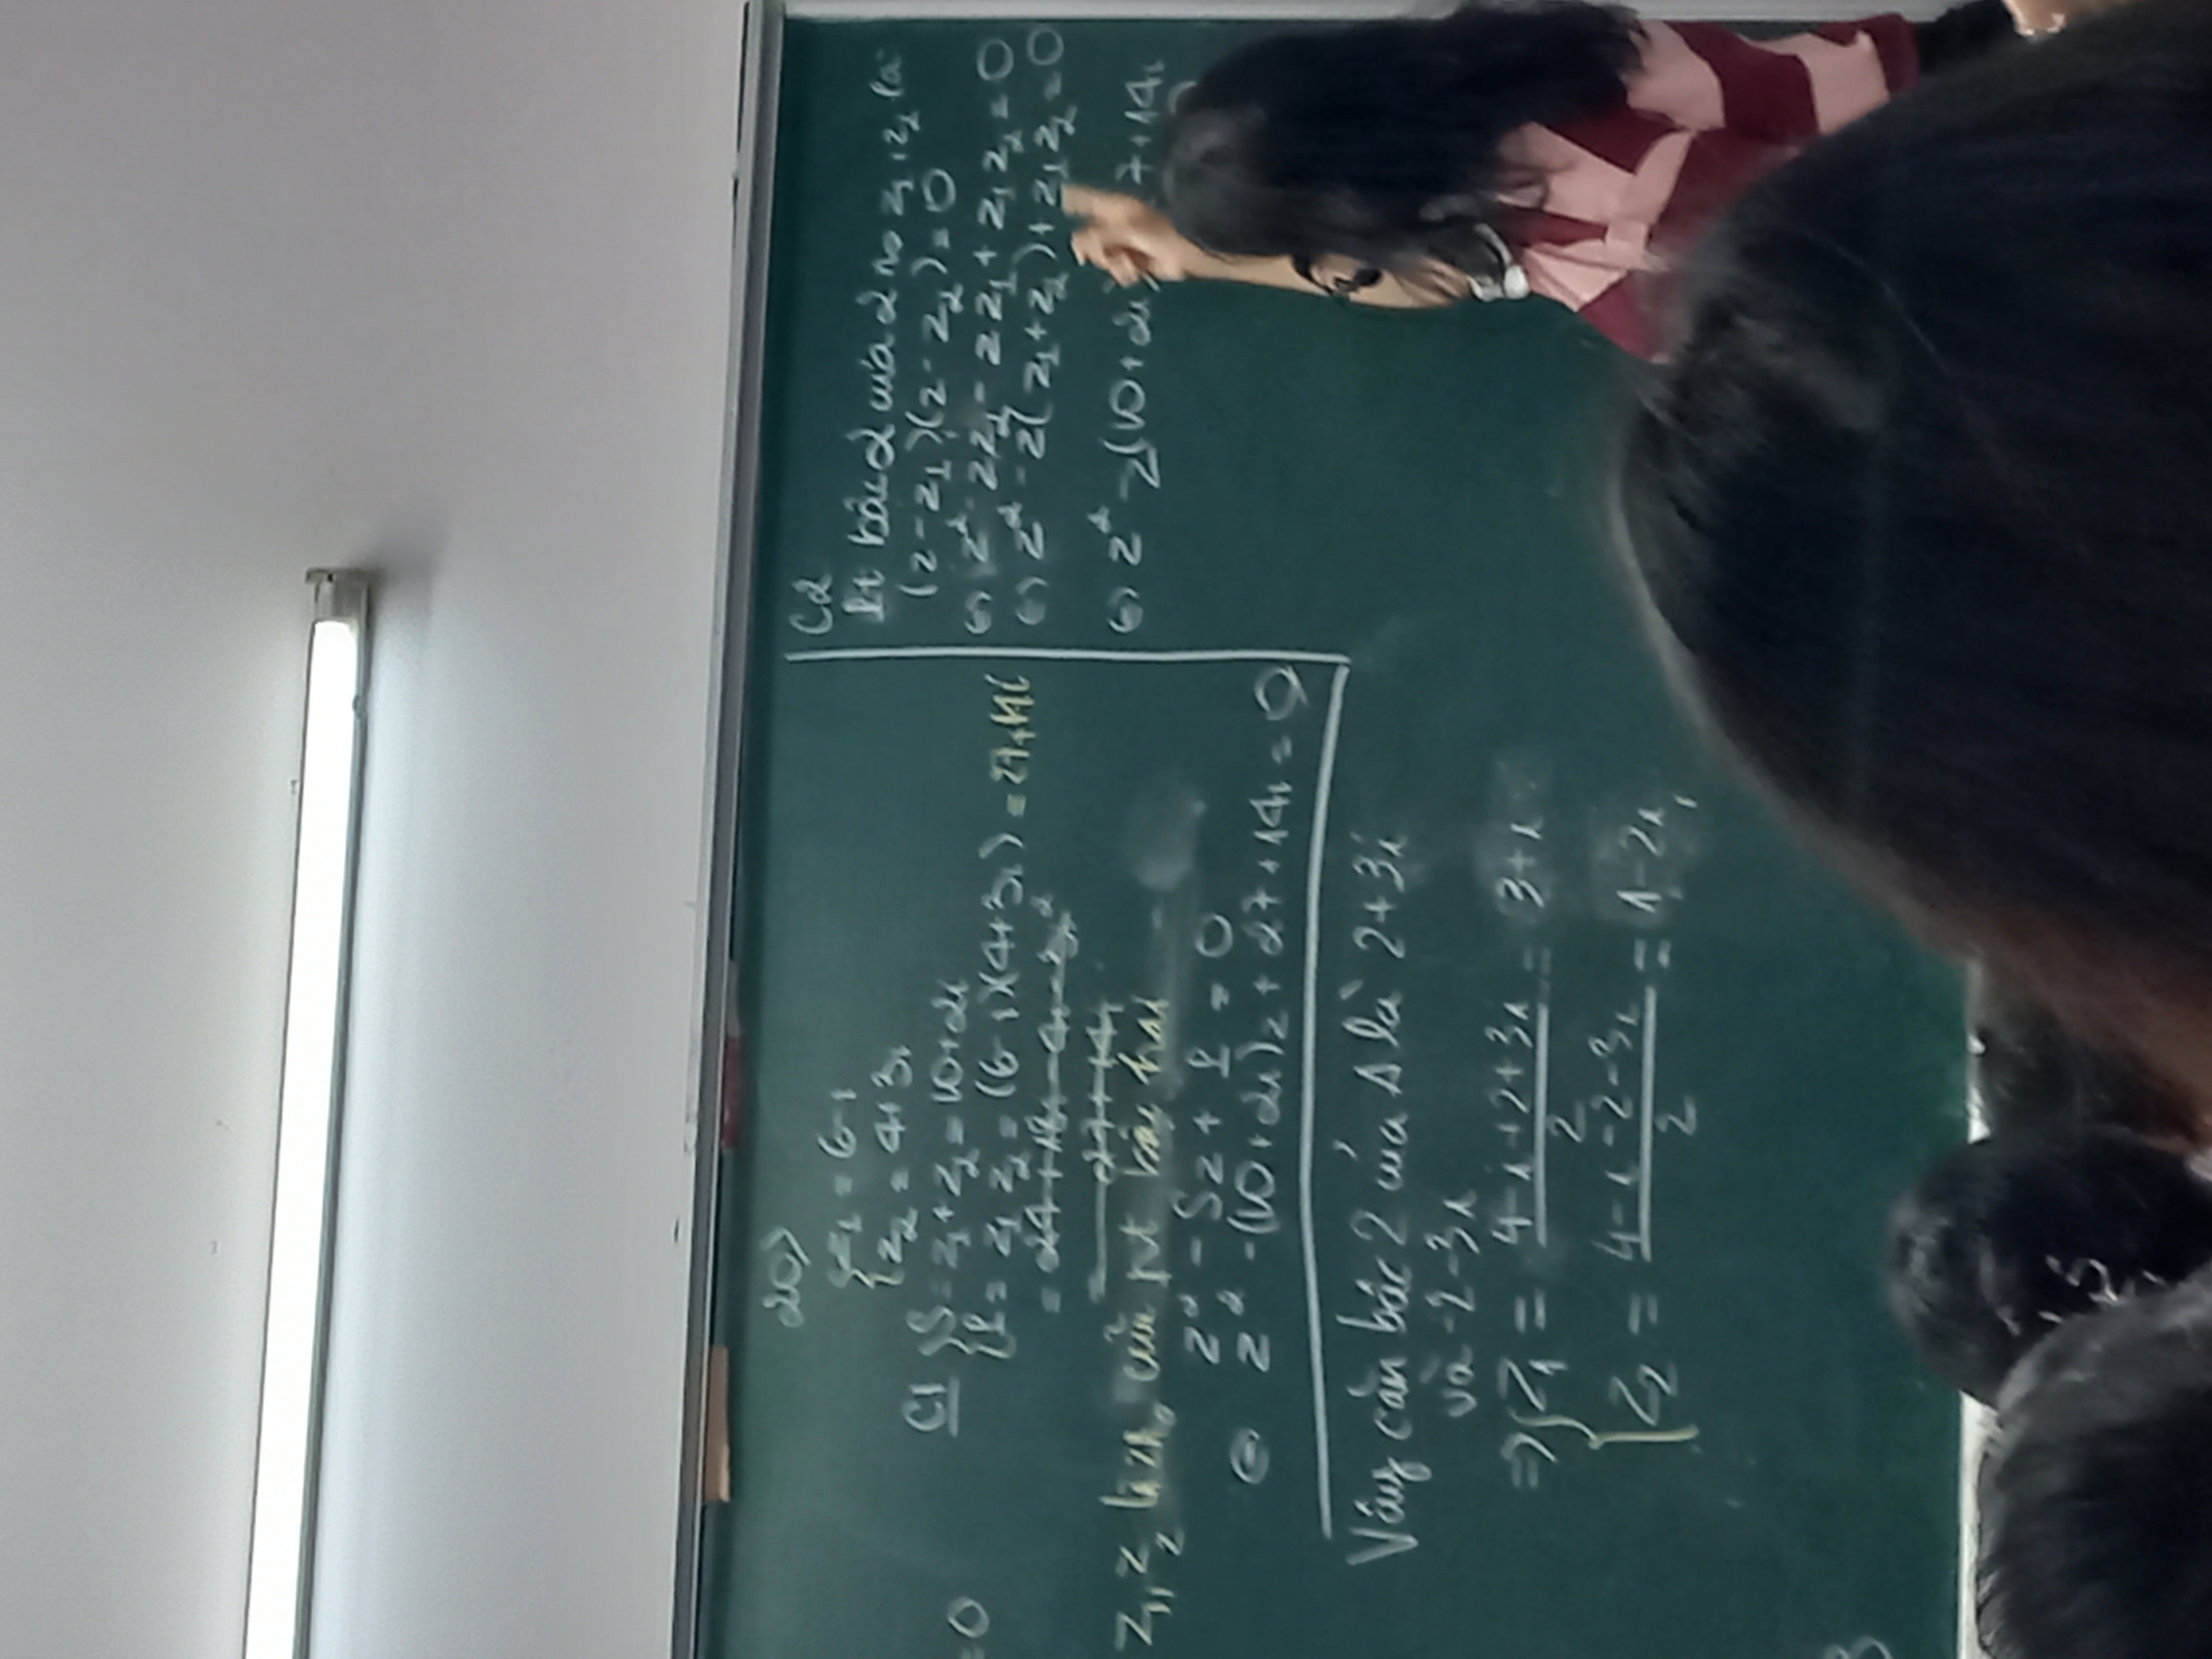 20>
z₁ = 6-i
z₂ = 4+3i
C1 S = z₁ + z₂ = 10+2i
=0
P = z₁ z₂ = (6-i)(4+3i) = 27+14i
= 24+18i-4i-3i²
= 27+14i
z₁, z₂ là no của pt bậc hai
z² - Sz + P = 0
⇔ z² -(10+2i)z + 27+14i = 0
Vậy căn bậc 2 của Δ là 2+3i
và -2-3i
⇒ z₁ = (4-i+2+3i)/2 = 3+i
z₂ = (4-i-2-3i)/2 = 1-2i
C2
Pt bậc 2 của 2 no z₁, z₂ là
(z-z₁)(z-z₂)=0
⇔ z² - zz₂ - zz₁ + z₁z₂ = 0
⇔ z² - z(z₁+z₂) + z₁z₂ = 0
⇔ z² - z(10+2i) 7+14i